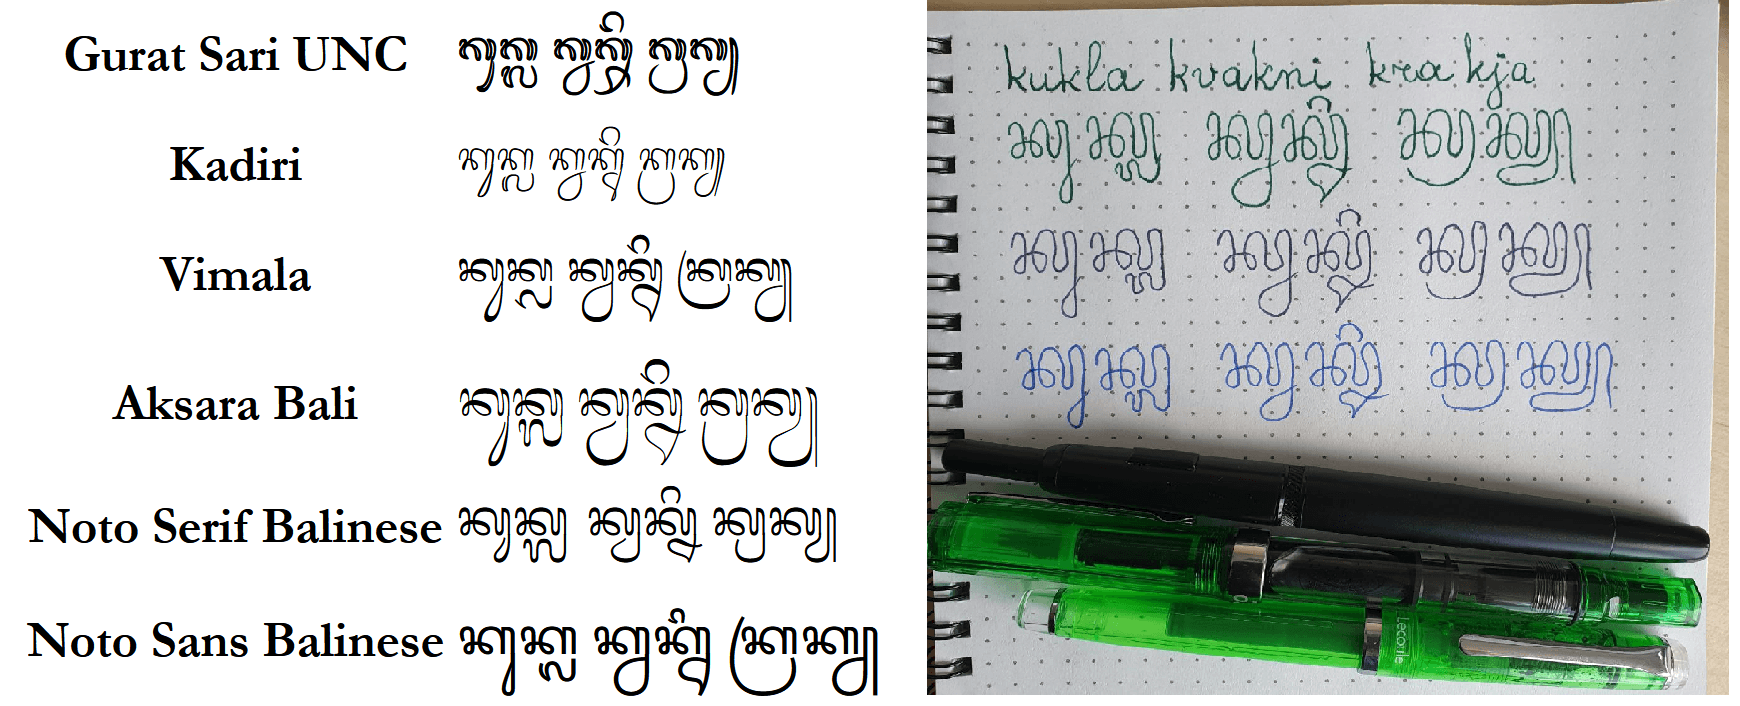 Gurat Sari UNC ᬓᬸᬓ᭄ᬮ ᬓ᭄ᬯᬓ᭄ᬦᬶ ᬓ᭄ᬭᬓ᭄ᬬ
Kadiri ᬓᬸᬓ᭄ᬮ ᬓ᭄ᬯᬓ᭄ᬦᬶ ᬓ᭄ᬭᬓ᭄ᬬ
Vimala ᬓᬸᬓ᭄ᬮ ᬓ᭄ᬯᬓ᭄ᬦᬶ ᬓ᭄ᬭᬓ᭄ᬬ
Aksara Bali ᬓᬸᬓ᭄ᬮ ᬓ᭄ᬯᬓ᭄ᬦᬶ ᬓ᭄ᬭᬓ᭄ᬬ
Noto Serif Balinese ᬓᬸᬓ᭄ᬮ ᬓ᭄ᬯᬓ᭄ᬦᬶ ᬓ᭄ᬭᬓ᭄ᬬ
Noto Sans Balinese ᬓᬸᬓ᭄ᬮ ᬓ᭄ᬯᬓ᭄ᬦᬶ ᬓ᭄ᬭᬓ᭄ᬬ
kukla kvakni kra kja
ᬓᬸᬓ᭄ᬮ ᬓ᭄ᬯᬓ᭄ᬦᬶ ᬓ᭄ᬭᬓ᭄ᬬ
ᬓᬸᬓ᭄ᬮ ᬓ᭄ᬯᬓ᭄ᬦᬶ ᬓ᭄ᬭᬓ᭄ᬬ
ᬓᬸᬓ᭄ᬮ ᬓ᭄ᬯᬓ᭄ᬦᬶ ᬓ᭄ᬭᬓ᭄ᬬ